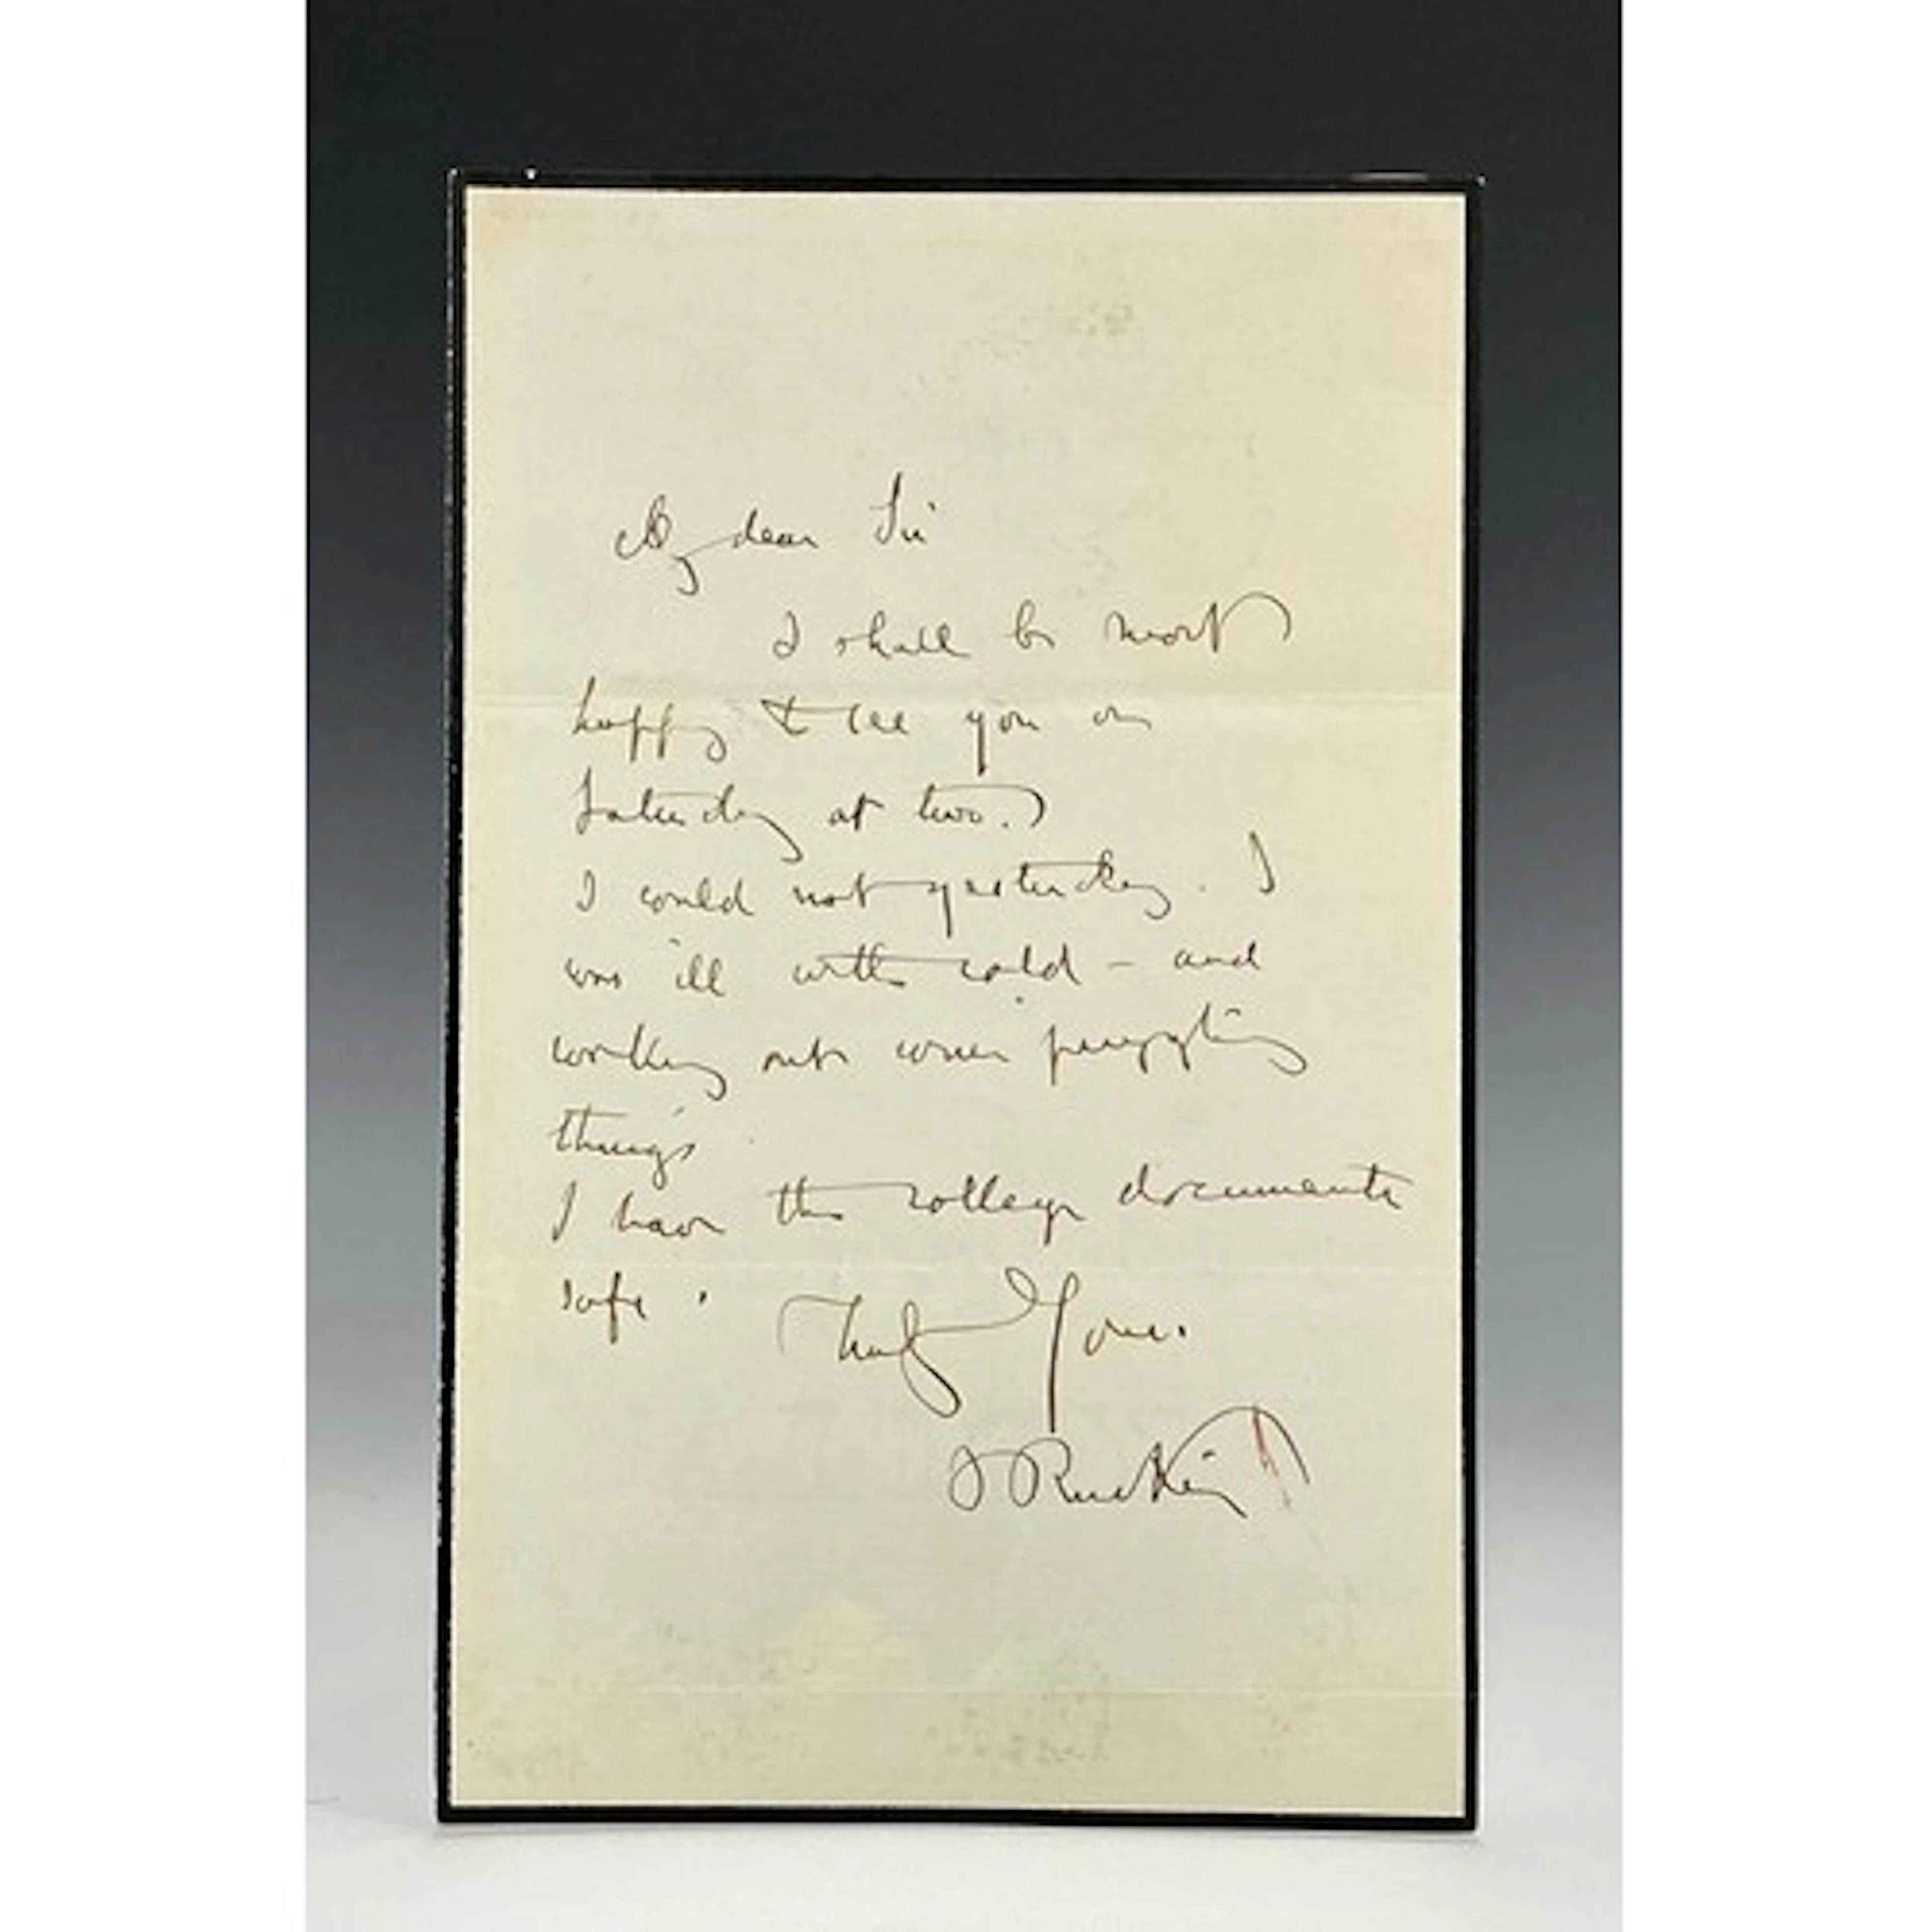 My dear Sir
I shall be most
happy to see you on
Saturday at two.
I could not yesterday. I
was ill with cold – and
working out some puzzling
things
I have the college documents
safe.
Truly Yours.
J Ruskin